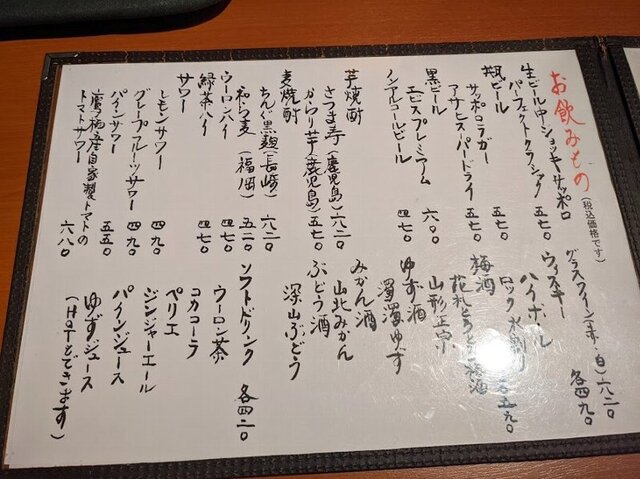 お飲みもの(税込価格です)
生ビール中ジョッキサッポロ
パーフェクトクラシック 五七〇
瓶ビール
サッポロラガー 五七〇
アサヒスーパードライ 五七〇
黒ビール
エビスプレミアム 六〇〇
ノンアルコールビール 四七〇
芋焼酎
さつま寿(鹿児島)六二〇
からり芋(鹿児島)五七〇
麦焼酎
ちんぐ黒麹(長崎)六二〇
和ら麦(福岡)五二〇
ウーロンハイ 四七〇
緑茶ハイ 四七〇
サワー
レモンサワー 四九〇
グレープフルーツサワー 四九〇
パインサワー 五五〇
鷹栖産自家製トマトの
トマトサワー 六八〇
グラスワイン(赤・白)六二〇
ウィスキー 各四九〇
ハイボール
ロック 水割り 各五九〇
梅酒
花札とろとろ梅酒
山形正宗
ゆず酒
濁濁ゆず
みかん酒
山北みかん
ぶどう酒
深山ぶどう
ソフトドリンク 各四二〇
ウーロン茶
コカコーラ
ペリエ
ジンジャーエール
パインジュース
ゆずジュース
(Hotもできます)